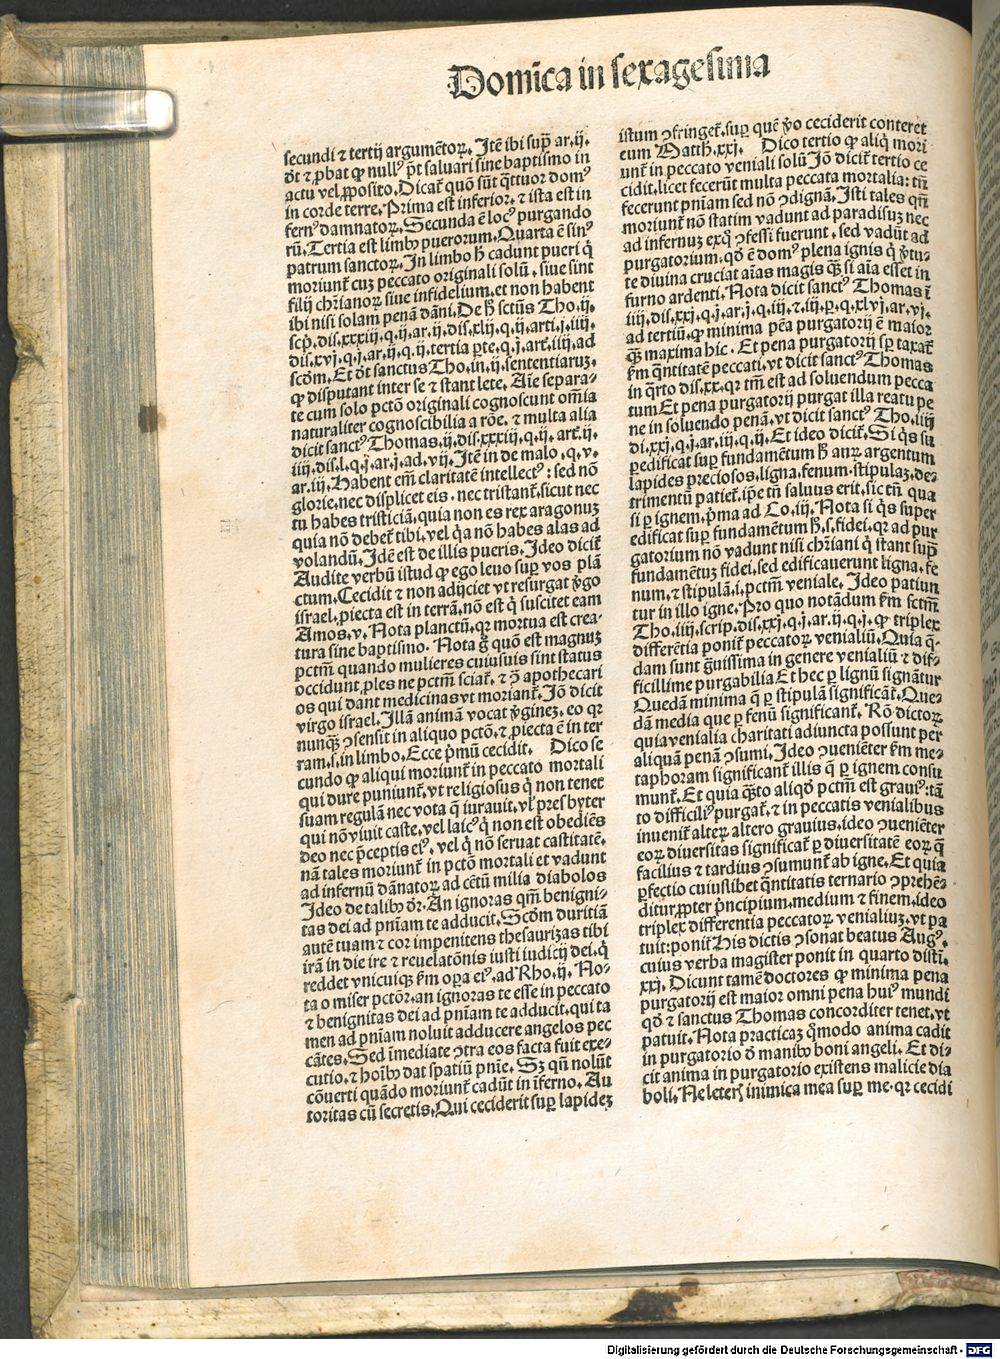 Domīca in sexagesima
secundi ⁊ tertij argumētoꝝ. Itē ibi sup̄ ar. ij.
ōt ⁊ ꝓbat ꝙ null⁹ p̄t saluari sine baptismo in
actu vel ꝓposito. Dicat᷒ quō sūt q̄ttuor dom⁹
in corde terre. Prima est inferior, ⁊ ista est in
fern⁹ damnatoꝝ. Secunda ē loc⁹ purgando
rū. Tertia est limb⁹ puerorum. Quarta ē sin⁹
patrum sanctoꝝ. In limbo h̄ cadunt pueri q̇
moriunt᷒ cuꝫ peccato originali solū, siue sint
filij chr̄ianoꝝ siue infidelium, et non habent
ibi nisi solam penā dāni. De h̄ sctūs Tho. ij.
scp̄. dis. xxxiij. q. ij. ar. ij. dis. xlij. q. ij. arti. j. iiij.
dis. xvj. q. j. ar. ij. q. ij. tertia ꝑte. q. j. art̄. iiij. ad
scd̄m. Et ōt sanctus Tho. in. ij. sententiaruꝫ.
ꝙ disputant inter se ⁊ stant lete. Aīe separa-
te cum solo pctō originali cognoscunt om̄ia
naturaliter cognoscibilia a rōe. ⁊ multa alia
dicit sanct⁹ Thomas. ij. dis. xxxiij. q. ij. art̄. ij.
iiij. dis. l. q. j. ar. j. ad. vij. Itē in de malo. q. v.
ar. iij. Habent em̄ claritatē intellect⁹: sed nō
glorie, nec displicet eis. nec tristant᷒, sicut nec
tu habes tristiciā, quia non es rex aragonuꝫ
quia nō debet᷒ tibi, vel q̇a nō habes alas ad
volandū. Idē est de illis pueris. Ideo dicit᷒
Audite verbū istud ꝙ ego leuo sup̄ vos plā
ctum. Cecidit ⁊ non adijciet vt resurgat v̇go
israel, ꝓiecta est in terrā, nō est q̇ suscitet eam
Amos. v. Nota planctū, qꝛ mortua est crea-
tura sine baptismo. Nota g̊ quō est magnuꝫ
pctm̄ quando mulieres cuiusuis sint status
occidunt ꝓles ne pctm̄ sciat᷒, ⁊ ꝯ̄ apothecari
os qui dant medicinas vt moriant᷒. Iō dicit
virgo israel. Illā animā vocat v̇gineꝫ, eo qꝛ
nunqꝫ̄ ꝯsensit in aliquo pctō, ⁊ ꝓiecta ē in ter
ram. s. in limbo. Ecce p̄mū cecidit. Dico se
cundo ꝙ aliqui moriunt᷒ in peccato mortali
qui dure puniunt᷒, vt religiosus q̇ non tenet
suam regulā nec vota q̄ iurauit, vl̓ presbyter
qui nō viuit caste, vel laic⁹ q̇ non est obediēs
deo nec p̄ceptis ei⁹, vel q̇ nō seruat castitatē.
nā tales moriunt᷒ in pctō mortali et vadunt
ad infernū dānatoꝝ ad cētū milia diabolos
Ideo de talib⁹ ōꝛ. An ignoras qm̄ benigni-
tas dei ad pn̄iam te adducit. Scd̄m duritiā
autē tuam ⁊ coꝛ impenitens thesaurizas tibi
irā in die ire ⁊ reuelatōnis iusti iudicij dei, q̇
reddet vnicuiqꝫ km̄ oꝑa ei⁹, ad Rho. ij. No-
ta o miser pctōꝛ. an ignoras te esse in peccato
⁊ benignitas dei ad pn̄iam te adducit, qui ta
men ad pn̄iam noluit adducere angelos pec
cātes. Sed īmediate ꝯtra eos facta fuit exe-
cutio. ⁊ hoīb⁹ dat spatiū pn̄ie. Sꝫ qn̄ nolūt
cōuerti quādo moriunt᷒ cadūt in īferno. Au
toritas cū secretis. Qui ceciderit sup̄ lapideꝫ
istum ꝯfringet᷒, sup̄ quē v̊o ceciderit conteret
eum Matth. xxj. Dico tertio ꝙ aliq̇ mori
unt᷒ in peccato veniali solū Iō dicit᷒ tertio ce
cidit, licet fecerūt multa peccata mortalia: tn̄
fecerunt pn̄iam sed nō ꝯdignā. Isti tales qn̄
moriunt᷒ nō statim vadunt ad paradisuꝫ nec
ad infernuꝫ exq̊ ꝯfessi fuerunt, sed vadūt ad
purgatorium, qd̄ ē dom⁹ plena ignis q̇ v̇tu-
te diuina cruciat aīas magis qꝫ̄ si aīa esset in
furno ardenti. Nota dicit sanct⁹ Thomas ī
iiij. dis. xxj. q. j. ar. j. q. iij. ⁊. iij. ꝑ. q. xlvj. ar. vj.
ad tertiū, ꝙ minima pēa purgatorij ē maior
qꝫ̄ maxima hic. Et pena purgatorij sp̄ taxat᷒
km̄ qn̄titatē peccati, vt dicit sanct⁹ Thomas
in q̄rto dis. xx. qꝛ tm̄ est ad soluendum pecca
tum Et pena purgatorij purgat illa reatu pe
ne in soluendo penā, vt dicit sanct⁹ Tho. iiij
di. xxj. q. j. ar. iij. q. ij. Et ideo dicit᷒. Si q̇s su
ꝑedificat sup̄ fundamētum h̄ auꝝ argentum
lapides preciosos, ligna, fenum. stipulaꝫ, de-
trimentū patiet᷒, ip̄e tn̄ saluus erit, sic tn̄ qua
si ꝑ ignem, p̄ma ad Co. iij. Nota si q̇s super
edificat sup̄ fundamētum h̄. s. fidei, qꝛ ad pur
gatorium nō vadunt nisi chr̄iani q̇ stant sup̄
fundamētuꝫ fidei, sed edificauerunt ligna, fe
num, ⁊ stipulā. i. pctm̄ veniale. Ideo patiun
tur in illo igne. Pro quo notādum km̄ sctm̄
Tho. iiij. scrip. dis. xxj. q. j. ar. ij. q. j. ꝙ triplex
differētia ponit᷒ peccatoꝝ venialiū. Quia q̄-
dam sunt g̊uissima in genere venialiū ⁊ dif-
ficillime purgabilia Et hec ꝑ lignū signātur
Quedā minima q̄ ꝑ stipulā significāt᷒. Que-
dā media que ꝑ fenū significant᷒. Rō dictoꝝ
quia venialia charitati adiuncta possunt per
aliquam penā ꝯsumi. Ideo ꝯueniēter km̄ me-
taphoram significant᷒ illis q̄ ꝑ ignem consu
munt᷒. Et quia qꝫ̄to aliqd̄ pctm̄ est graui⁹: tā
to difficili⁹ purgat᷒, ⁊ in peccatis venialibus
inuenit᷒ alteꝝ altero grauius, ideo ꝯueniēter
eoꝝ diuersitas significat᷒ ꝑ diuersitatē eoꝝ q̄
facilius ⁊ tardius ꝯsumunt᷒ ab igne. Et quia
ꝑfectio cuiuslibet qn̄titatis ternario ꝯprehē-
ditur, ꝓpter p̄ncipium, medium ⁊ finem, ideo
triplex differentia peccatoꝝ venialiuꝫ, vt pa
tuit: ponit᷒ His dictis ꝯsonat beatus Aug⁹.
cuius verba magister ponit in quarto distī.
xxj. Dicunt tamē doctores ꝙ minima pena
purgatorij est maior omni pena hui⁹ mundi
qd̄ ⁊ sanctus Thomas concorditer tenet, vt
patuit. Nota practicaꝫ q̊modo anima cadit
in purgatorio d̄ manib⁹ boni angeli. Et di-
cit anima in purgatorio existens malicie dia
boli. Ne leteꝛ̄ inimica mea sup̄ me. qꝛ cecidi
Digitalisierung gefördert durch die Deutsche Forschungsgemeinschaft - DFG